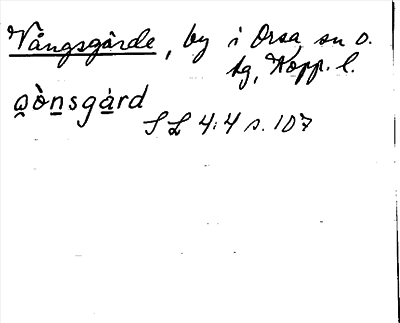 Vångsgärde, by i Orsa sn o.
tg, Kopp. l.
a̯ò̱nsgà̱rd
S L 4:4 s. 107